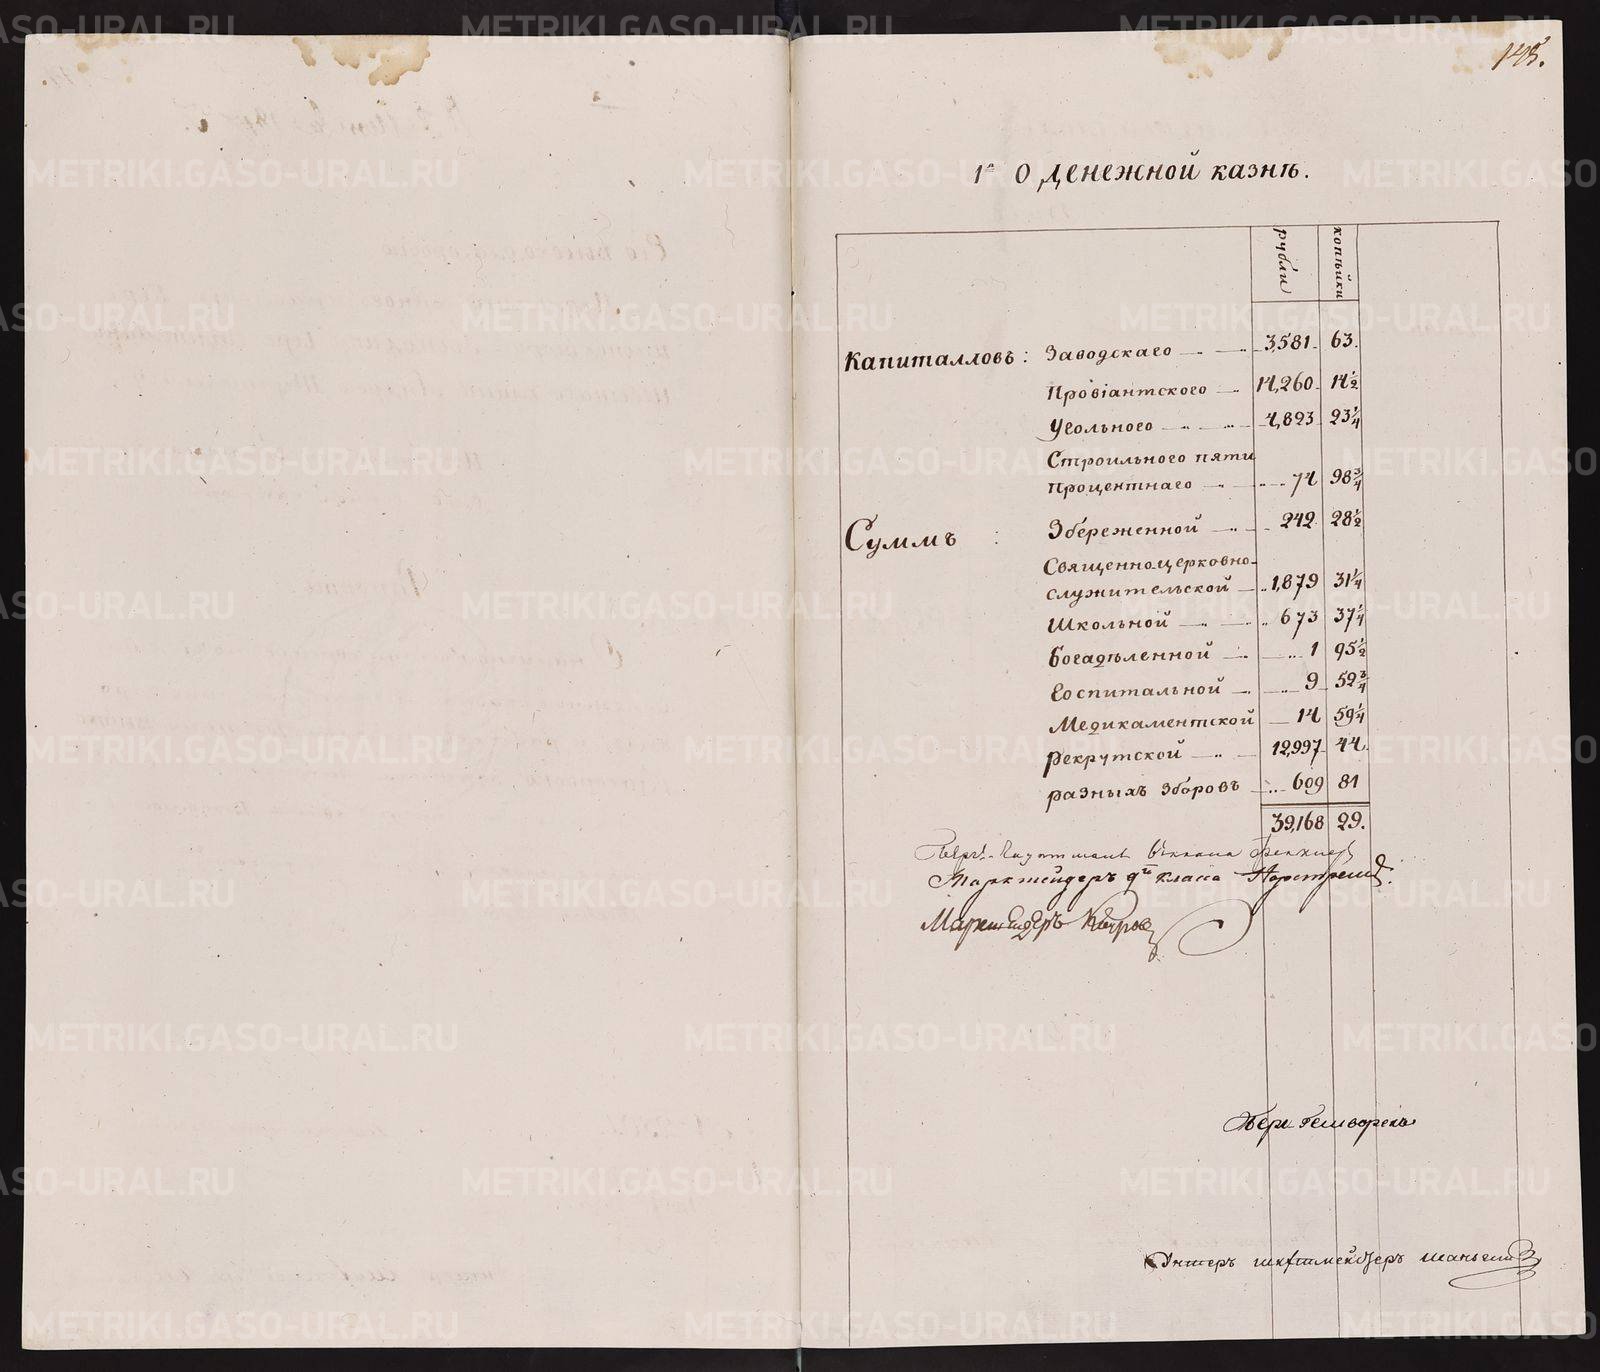 145.
1е О денежной казнѣ.
рубли
копѣйки
Капиталловъ: Заводскаго 3,581 63.
Провіантского 14,260 14 1/2
Угольного 4,823 23 1/4
Строильного пяти
процентнаго 74 98 3/4
Суммъ: Збереженной 242 28 1/2
Священноцерковно-
служительской 1,879 31 1/4
Школьной 673 37 1/4
Богадѣленной 1 95 1/2
Госпитальной 9 52 3/4
Медикаментской 14 59 1/4
рекрутской 12,997 44
разныхъ зборовъ 609 81
39,168 29.
Маркшейдеръ 9го класа
Маркшейдеръ
Берг гешворенъ
Унтеръ шихтмейстеръ
METRIKI.GASO-URAL.RU